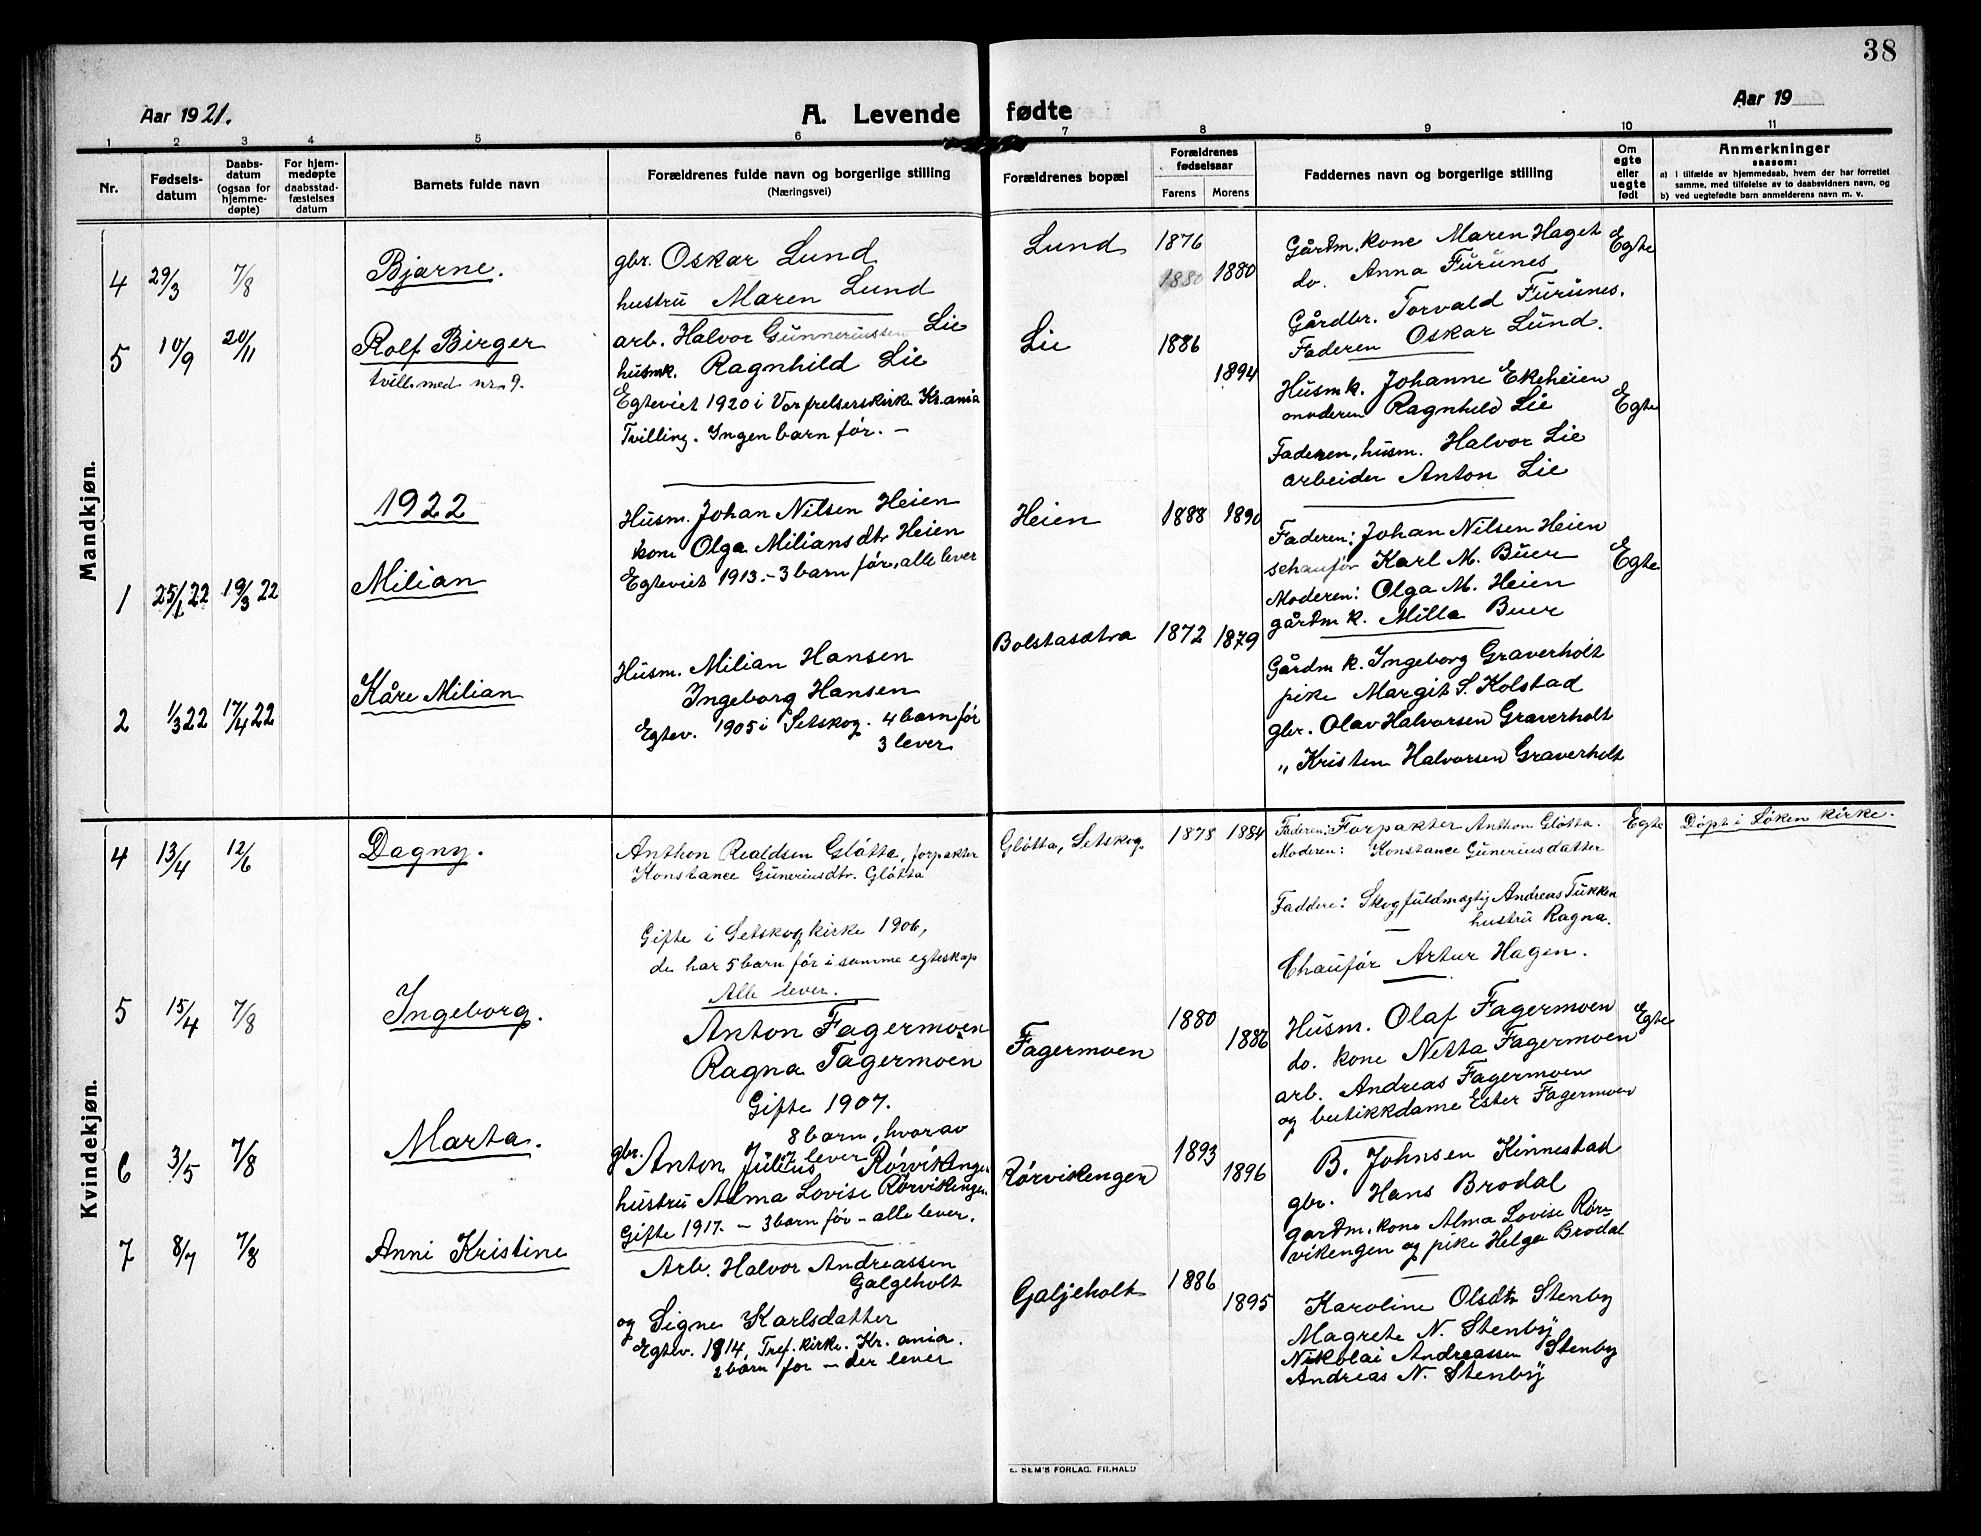 38
Aar 1921.
A. Levende fødte
Aar 19
1 2 3 4 5 6 7 8 9 10 11
Nr.
Fødsels-
datum
Daabs-
datum
(ogsaa for
hjemme-
døpte)
For hjem-
medøpte
daabsstad-
fæstelses
datum
Barnets fulde navn
Forældrenes fulde navn og borgerlige stilling
(Næringsvei)
Forældrenes bopæl
Forældrenes
fødselsaar
Farens Morens
Faddernes navn og borgerlige stilling
Om
egte
eller
uegte
født
Anmerkninger
saasom:
a) i tilfælde av hjemmedaab, hvem der har forrettet
samme, med tilføielse av to daabsvidners navn, og
b) ved uegtefødte barn anmelderens navn m. v.
Mandkjøn.
4 29/3 7/8 Bjarne.
gbr. Oskar Lund
hustru Maren Lund
Lund 1876
1880 1880
Gårdm. kone Maren Haget
do. Anna Furunes
Gårdbr. Torvald Furunes.
Faderen Oskar Lund.
Egte
5 10/9 20/11 Rolf Birger
tvill. med nr. 9.
arb. Halvor Gunneriussen Lie
husmk. Ragnhild Lie
Egteviet 1920 i Vor frelserskirke Kr.ania
Tvilling. Ingen barn før. –
Lie 1886
1894
Husmk. Johanne Ekeheien
moderen Ragnhild Lie
Faderen, husm. Halvor Lie
arbeider Anton Lie
Egte
1922
1 25/1 22 19/3 22 Milian
Husm. Johan Nilsen Heien
kone Olga Miliansdtr Heien
Egteviet 1913. – 3 barn før, alle lever
Heien 1888 1890
Faderen: Johan Nilsen Heien
schaufør Karl M. Buer
Moderen: Olga M. Heien
gårdmk. Milla Buer
Egte
2 1/3 22 17/4 22 Kåre Milian
Husm. Milian Hansen
Ingeborg Hansen
Egtev. 1905 i Setskog. 4 barn før
3 lever
Bolstasætra 1872 1879
Gårdm k. Ingeborg Graverholt
pike Margit S. Kolstad
gbr. Olav Halvorsen Graverholt
„ Kristen Halvorsen Graverholt
Kvindekjøn.
4 13/4 12/6 Dagny.
Anthon Realdsen Gløtta, forpakter
Konstance Guneriusdtr. Gløtta
Gifte i Setskog kirke 1906,
de har 5 barn før i samme egteskap
Alle lever.
Gløtta, Setskog. 1878 1884
Faderen: Forpakter Anthon Gløtta.
Moderen: Konstance Guneriusdatter
Faddere: Skogfuldmægtig Andreas Tukken
hustru Ragna.
Chaufør Artur Hagen.
Egte
Døpt i Løken kirke.
5 15/4 7/8 Ingeborg.
Anton Fagermoen
Ragna Fagermoen
Gifte 1907.
8 barn, hvorav
7 lever
Fagermoen 1880
1886
Husm. Olaf Fagermoen
do. kone Netta Fagermoen
arb. Andreas Fagermoen
og butikkdame Ester Fagermoen
Egte
6 3/5 7/8 Marta.
gbr. Anton Julius Rørvikengen
hustru Alma Lovise Rørvikengen.
Gifte 1917. – 3 barn før – alle lever.
Rørvikengen 1893
1896
B. Johnsen Kinnestad
gbr. Hans Brodal
gardm. kone Alma Lovise Rør-
vikengen og pike Helga Brodal
7 8/7 7/8 Anni Kristine
Arb. Halvor Andreassen
Galgeholt
og Signe Karlsdatter
Egtev. 1914, Tref. kirke. Kr. ania.
2 børn før – der lever
Galjeholt 1886
1895
Karoline Olsdtr Stenby
Magrete N. Stenby
Nikolai Andreassen Stenby
Andreas N. Stenby
E. SEM'S FORLAG. FR.HALD